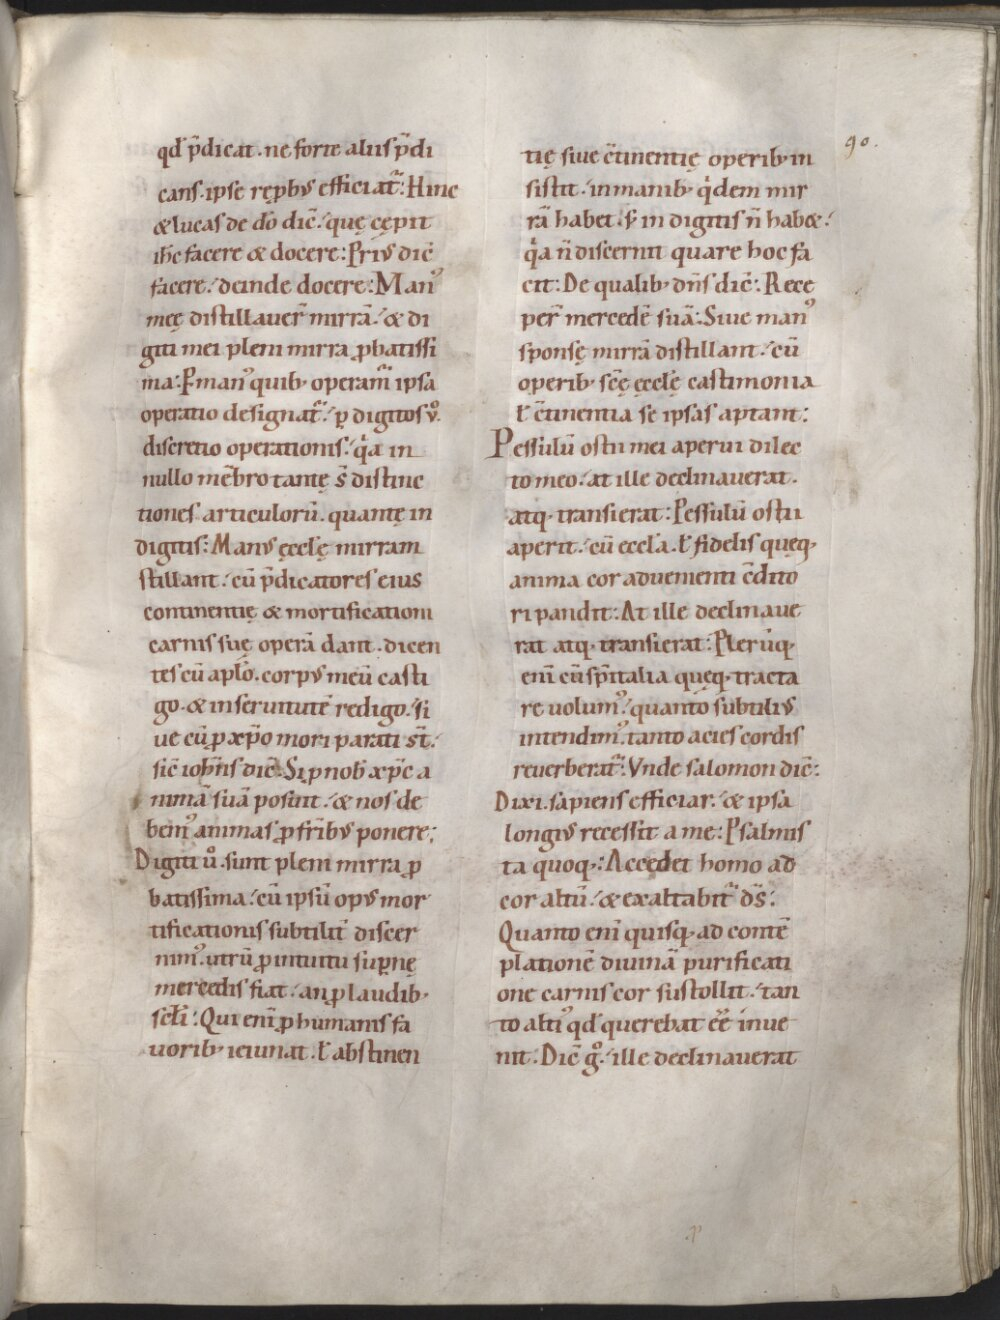 qd̛ p̄dicat. ne forte aliis p̄di
cans. ipse rẹpbus efficiat᷑: Hinc
& lucas de dō dic̄. quę cępit
ihc̄ facere & docere: Prius dic̄
facere. deinde docere: Manꝰ
meę distillauer̄ mirrā. & di
giti mei pleni mirra ꝓbatissi
ma: P̱ manꝰ quib; operam̄ ipsa
operatio designat᷑. ꝑ digitos v̊.
discretio operationis. q̇a in
nullo mēbro tantę s̄ distinc
tiones articulorū. quantę in
digitis: Manus ęcclę̄ mirram
stillant. cū p̄dicatores eius
continentię & mortificationi
carnis suę operā dant. dicen
tes cū aplō. corpus meū casti
go. & in seruitutē redigo. si
ue cū ꝓ xp̄o mori parati st̄.
sic̄ ioh̄nis dic̄. Si ꝓ nob̛ xp̄c a
nimā suā posuit. & nos de
bemꝰ animas ꝓ frībus ponere;
Digiti ů. sunt pleni mirra ꝓ
batissima. cū ipsū opus mor
tificationis subtilit̄ discer
nimꝰ. utrū ꝓ intuitu supnę
mercedis fiat. an ꝓ laudib;
sc̄li: Qui eni ꝓ humanis fa
uorib; ieiunat. ł abstinen
tię siue c̄tinentię operib; in
sistit. in manib; q̇dem mir
rā habet. s; in digitis n̄ hab&.
q̇a n̄ discernit quare hoc fa
cit: De qualib; dn̄s dic̄: Rece
per̄ mercedē suā: Siue manꝰ
sponsę mirrā distillant. cū
operib; sc̄ę ęcclę̄ castimonia
ł c̄tinentia se ipsas aptant:
Pessulū ostii mei aperui dilec
to meo. at ille declinauerat.
atq; transierat: Pessulū ostii
aperit. cū eccl̄a. ł fidelis quęq;
anima cor aduenienti c̄dito
ri pandit: At ille declinaue
rat atq; transierat: Plerūq;
eni cū sp̄italia quęq; tracta
re uolumꝰ. quanto subtilius
intendimꝰ. tanto acies cordis
reuerberat᷑: Vnde salomon dic̄:
Dixi. sapiens efficiar. & ipsa
longius recessit a me: Psalmis
ta quoq;: Accedet homo ad
cor altū. & exaltabit᷑ ds̄:
Quanto eni quisq; ad contē
plationē diuinā purificati
one carnis cor sustollit. tan
to altiꝰ qd̛ querebat eē̄ inue
nit: Dic̄ g̊. ille declinauerat
90.